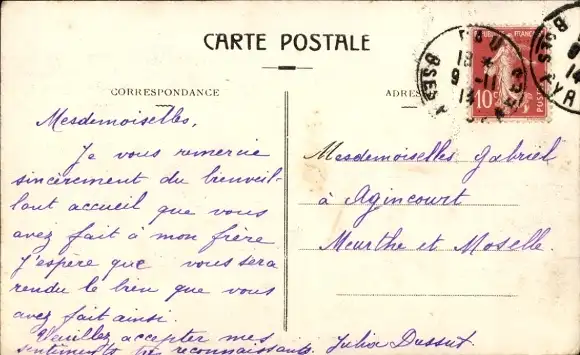 CARTE POSTALE
CORRESPONDANCE
Mesdemoiselles,
Je vous remercie
sincèrement du bienveil-
lant accueil que vous
avez fait à mon frère
J'espère que vous sera
rendu le bien que vous
avez fait ainsi.
Veuillez accepter mes
sentiments très reconnaissants. Julia Dussut
ADRES
Mesdemoiselles Gabriel
à Agincourt
Meurthe et Moselle.
10
POSTES
18 *
9 - 11
BSES
PYR